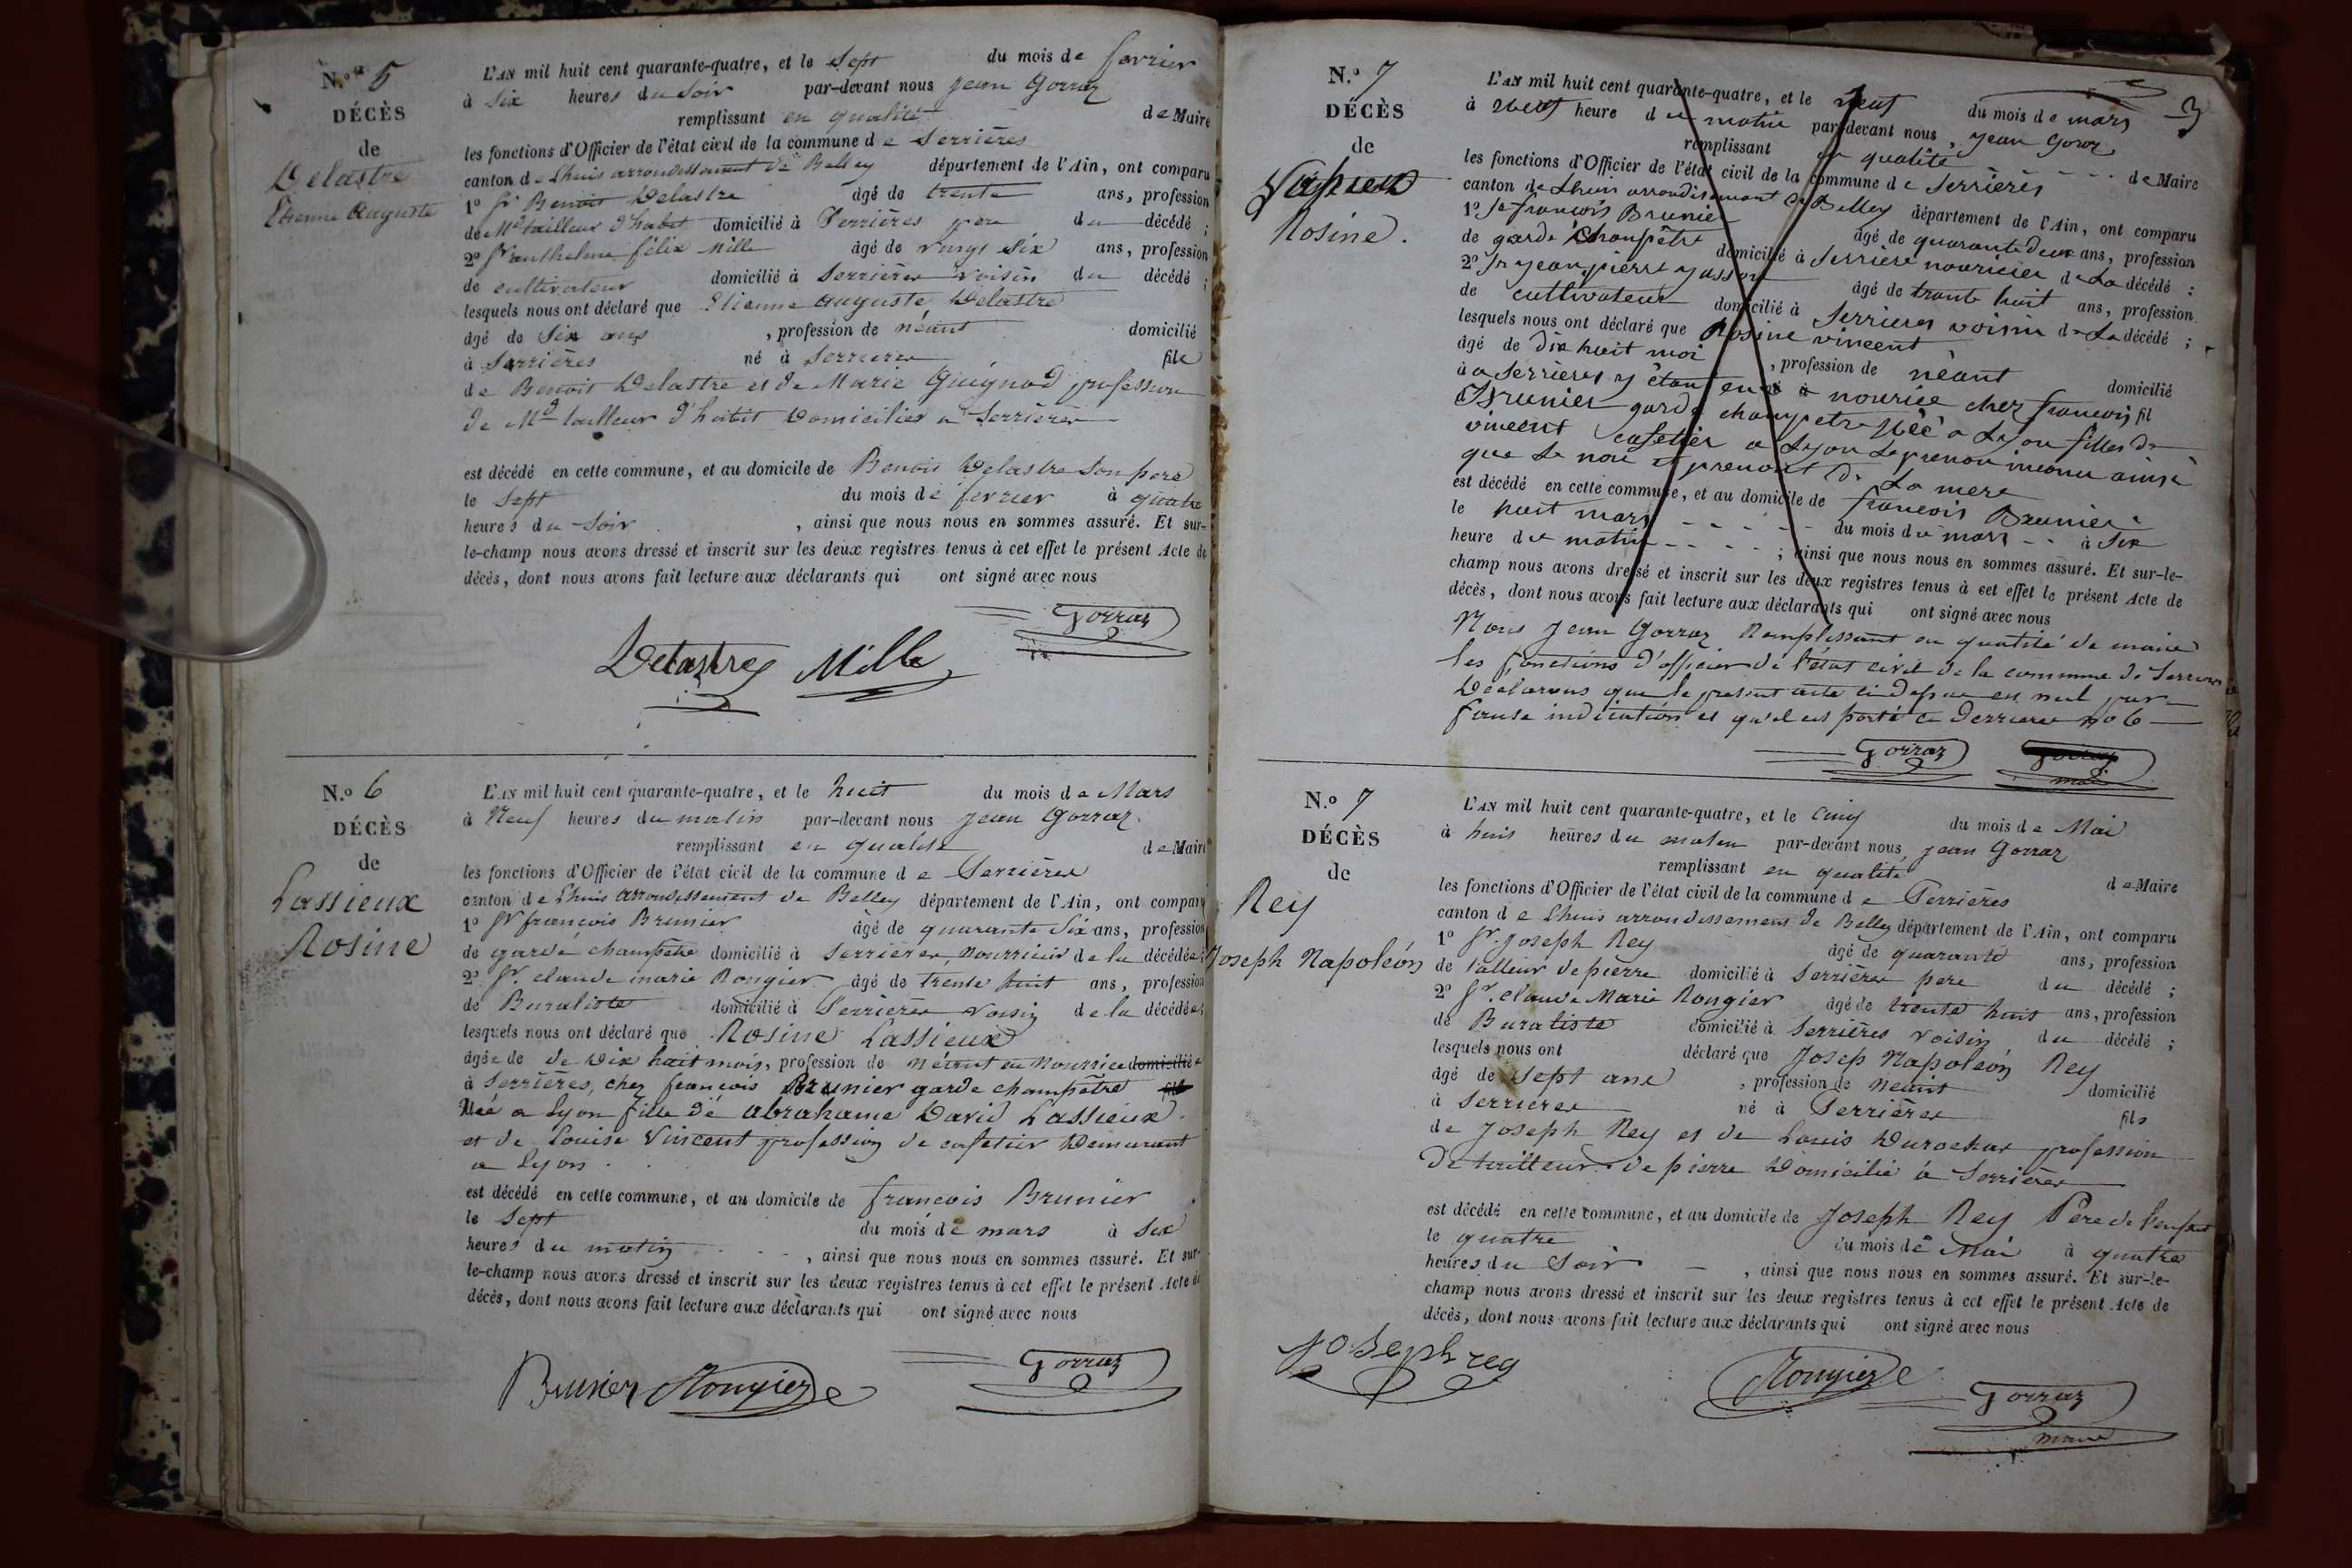 N.º 5
DÉCÈS
de
Delastre
Étienne Auguste
L'AN mil huit cent quarante-quatre, et le Sept du mois de fevrier
à six heures du soir par-devant nous jean Gorraz
remplissant en qualité de Maire
les fonctions d'Officier de l'état civil de la commune de Serrières
canton de Lhuis arrondissement de Belley département de l'Ain, ont comparu
1º Sr Benoit Delastre âgé de trente ans, profession
de Md tailleur d'habit domicilié à Serrières pere du décédé ;
2º Sr anthelme félix Mille âgé de vingt six ans, profession
de cultivateur domicilié à Serrières voisin du décédé ;
lesquels nous ont déclaré que Etienne Auguste Delastre
âgé de six ans , profession de néant domicilié
à Serrières né à Serrieres fils
de Benoit Delastre et de Marie Guignod profession
de Md tailleur d'habit Domicilier a Serrières
est décédé en cette commune, et au domicile de Benoit Delastre son pere
le sept du mois de fevrier à quatre
heures du soir , ainsi que nous nous en sommes assuré. Et sur-
le-champ nous avons dressé et inscrit sur les deux registres tenus à cet effet le présent Acte de
décès, dont nous avons fait lecture aux déclarants qui ont signé avec nous
Gorraz
Delastre Mille
N.º 6
DÉCÈS
de
Lassieux
Rosine
L'AN mil huit cent quarante-quatre, et le huit du mois de Mars
à Neuf heures du matin par-devant nous jean Gorraz
remplissant en qualité de Maire
les fonctions d'Officier de l'état civil de la commune de Serrières
canton de Lhuis arrondissement de Belley département de l'Ain, ont comparu
1º Sr françois Brunier âgé de quarante six ans, profession
de garde champêtre domicilié à Serrieres, Nourricier de la décédée ;
2º Sr claude marie Rougier âgé de trente huit ans, profession
de Buraliste domicilié à Serrières voisin de la décédée ;
lesquels nous ont déclaré que Rosine Lassieux
âgée de de dix huit mois, profession de néant en Nourrice domiciliée
à Serrières, chez françois Brunier garde champêtre fil
Née a Lyon fille de abrahame David Lassieux
et de Louise Vincent profession de cafetier Demeurant
a Lyon.
est décédé en cette commune, et au domicile de françois Brunier
le Sept du mois de mars à six
heures du matin , ainsi que nous nous en sommes assuré. Et sur-
le-champ nous avons dressé et inscrit sur les deux registres tenus à cet effet le présent Acte de
décès, dont nous avons fait lecture aux déclarants qui ont signé avec nous
Gorraz
Brunier Rougier
3
N.º 7
DÉCÈS
de
Rosine.
L'AN mil huit cent quarante-quatre, et le neuf du mois de mars
à neuf heure du matin par-devant nous, jean Goraz
remplissant en qualité de Maire
les fonctions d'Officier de l'état civil de la commune de Serrières
canton de Lhuis arrondisement de Belley département de l'Ain, ont comparu
1º Sr françois Brunier âgé de quarante deux ans, profession
de garde champêtre domicilié à Serriere nouricier de La décédé ;
2º Sr jean pierre âgé de trante huit ans, profession
de cultivateur domicilié à Serrieres voisin de La décédé ;
lesquels nous ont déclaré que Rosine vincent
âgé de dix huit moi , profession de néant domicilié
à a Serrieres y étant en nourice chez francois fil
Brunier garde champetre Née a Lyon filles de
vincent cafetier a Lyon Le prenon inconu ainsi
que Le non et prenon de La mere
est décédé en cette commune, et au domicile de francois Brunier
le huit mars du mois de mars à six
heure du matin ; ainsi que nous nous en sommes assuré. Et sur-le-
champ nous avons dressé et inscrit sur les deux registres tenus à cet effet le présent Acte de
décès, dont nous avons fait lecture aux déclarants qui ont signé avec nous
Nous Jean Gorraz Remplissant en qualité de maire
les fonctions d'officier de l'état civil de la commune de Serrieres
Déclarons que le present acte ci depue en nul par
fause indication et qu'il est porté ci derriere no 6
Gorraz
N.º 7
DÉCÈS
de
Rey
Joseph Napoléon
L'AN mil huit cent quarante-quatre, et le cinq du mois de Mai
à huit heures du maten par-devant nous, jean Gorraz
remplissant en qualité de Maire
les fonctions d'Officier de l'état civil de la commune de Serrières
canton de Lhuis arrondissement de Belley département de l'Ain, ont comparu
1º Sr. joseph Rey âgé de quarante ans, profession
de tailleur de pierre domicilié à Serrières pere du décédé ;
2º Sr. claude Marie Rougier âgé de trente huit ans, profession
de Buraliste domicilié à Serrières voisin du décédé ;
lesquels nous ont déclaré que Josep Napoléon Rey
âgé de sept ans , profession de neant domicilié
à Serrieres né à Serrières fils
de Joseph Rey et de Louis Durochat profession
de tailleur de pierre Domicilié à Serrières
est décédé en cette commune, et au domicile de Joseph Rey Pere de l'enfant
le quatre du mois de Mai à quatre
heures du Soir , ainsi que nous nous en sommes assuré. Et sur-le-
champ nous avons dressé et inscrit sur les deux registres tenus à cet effet le présent Acte de
décès, dont nous avons fait lecture aux déclarants qui ont signé avec nous
Joseph rey
Rougier
Gorraz
maire